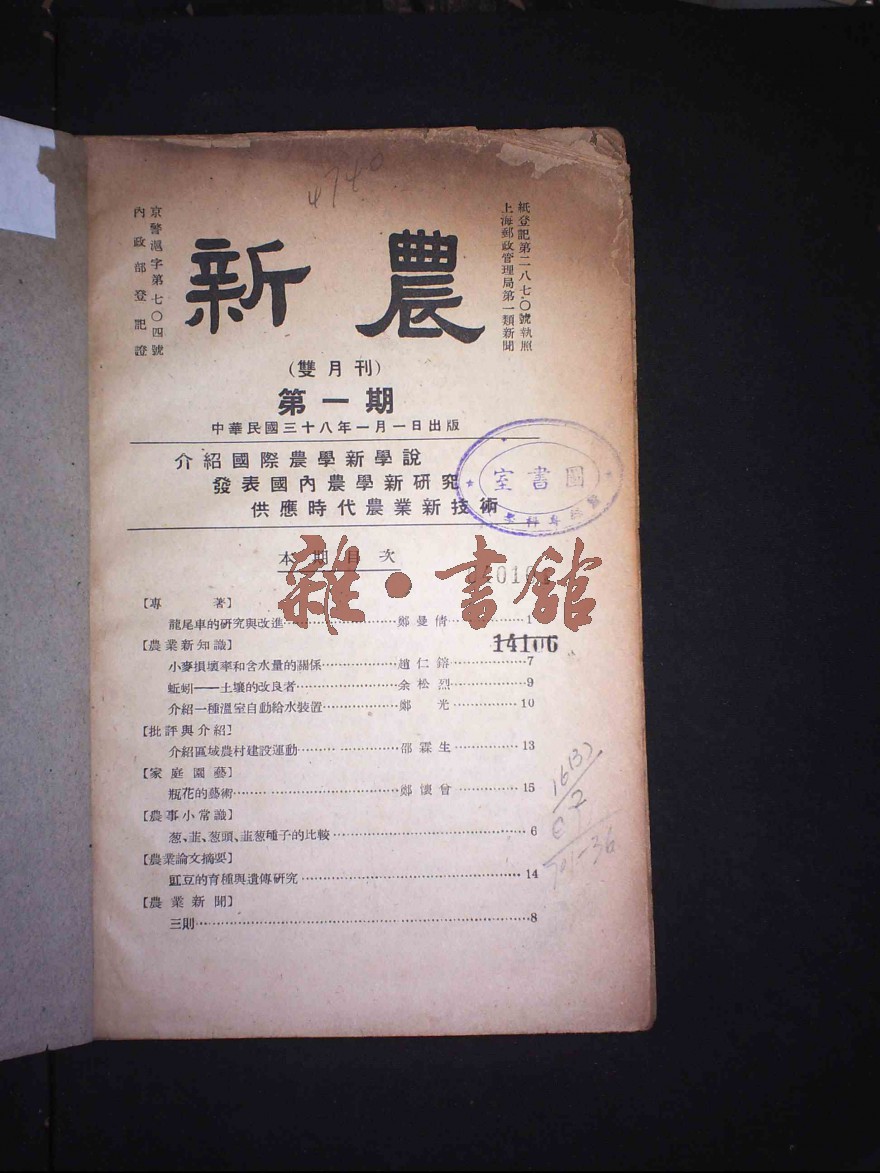 4740
紙登記第二八七〇號執照
上海郵政管理局第一類新聞
新農
京警滬字第七〇四號
內政部登記證
(雙月刊)
第一期
中華民國三十八年一月一日出版
介紹國際農學新學說
發表國內農學新研究
供應時代農業新技術
圖書室
雜·書館
本期目次
14106
【專著】
龍尾車的研究與改進……鄭曼倩……1
【農業新知識】
小麥損壞率和含水量的關係……趙仁鎔……7
蚯蚓——土壤的改良者……余松烈……9
介紹一種溫室自動給水裝置……鄭光……10
【批評與介紹】
介紹區域農村建設運動……邵霖生……13
【家庭園藝】
瓶花的藝術……鄭懷曾……15
【農事小常識】
葱、韮、葱頭、韮葱種子的比較……6
【農業論文摘要】
豇豆的育種與遺傳研究……14
【農業新聞】
三則……8